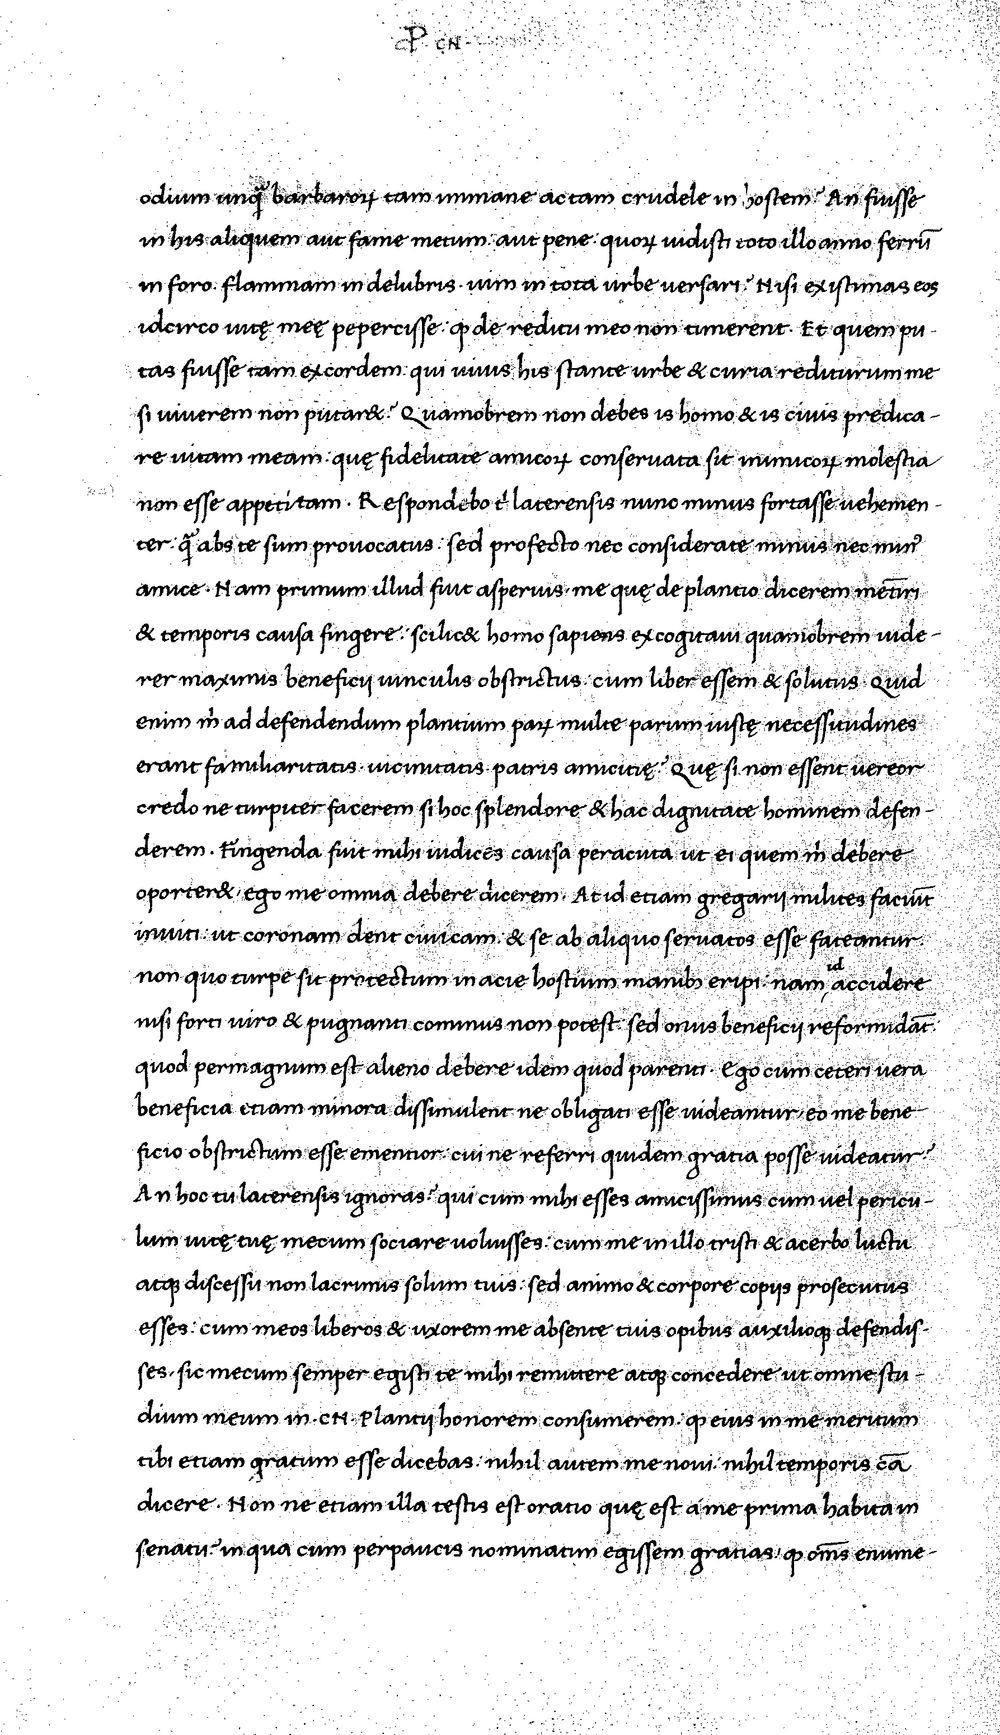 P CN
odium unq̃ barbaroꝝ tam immane ac tam crudele in hostem? An fuisse
in his aliquem aut fame metum: aut pene: quoꝝ uidisti toto illo anno ferrū
in foro. flammam in delubris. uim in tota urbe uersari? Nisi existimas eos
idcirco uitę meę pepercisse: ꝙ de reditu meo non timerent. Et quem pu-
tas fuisse tam excordem: qui uiuus his stante urbe & curia rediturum me
si uiuerem non putar&? Quamobrem non debes is homo & is ciuis predica-
re uitam meam: quę fidelitate amicoꝝ conseruata sit inimicoꝝ molestia
non esse appetitam. Respondebo t' laterensis nunc minus fortasse uehemen-
ter: q̃ abs te sum prouocatus: sed profecto nec considerate minus nec min'
amice. Nam primum illud fuit asperius. me quę de plancio dicerem mētiri
& temporis causa fingere: scilic& homo sapiens excogitaui quamobrem uide-
rer maximis beneficij uinculis obstrictus: cum liber essem & solutus. Quid
enim m' ad defendendum plantium paꝝ multe parum iustę necessitudines
erant familiaritatis. uicinitatis. patris amicitię? Quę si non essent uereor
credo ne turpiter facerem si hoc splendore & hac dignitate hominem defen-
derem. Fingenda fuit mihi iudices causa peracuta ut ei quem m' debere
oporter& ego me omnia debere dicerem. At id etiam gregarij milites faciūt
inuiti: ut coronam dent ciuicam: & se ab aliquo seruatos esse fateantur.
non quo turpe sit protectum in acie hostium manibꝫ eripi: nam id accidere
nisi forti uiro & pugnanti comminus non potest: sed onus beneficij reformidāt.
quod permagnum est alieno debere idem quod parenti. Ego cum ceteri uera
beneficia etiam minora dissimulent ne obligati esse uideantur. eo me bene
ficio obstrictum esse ementior: cui ne referri quidem gratia posse uideatur?
An hoc tu laterensis ignoras? qui cum mihi esses amicissimus cum uel pericu-
lum uitę tuę mecum sociare uoluisses: cum me in illo tristi & acerbo luctu
atqꝫ discessu non lacrimis solum tuis: sed animo & corpore copijs prosecutus
esses: cum meos liberos & uxorem me absente tuis opibus auxilioqꝫ defendis-
ses. sic mecum semper egisti te mihi remittere atqꝫ concedere ut omne stu-
dium meum in .CN. Plantij honorem consumerem: ꝙ eius in me meritum
tibi etiam gratum esse dicebas: nihil autem me noui: nihil temporis cā
dicere. Non ne etiam illa testis est oratio quę est a me prima habita in
senatu? in qua cum perpaucis nominatim egissem gratias. ꝙ om̄s enume-